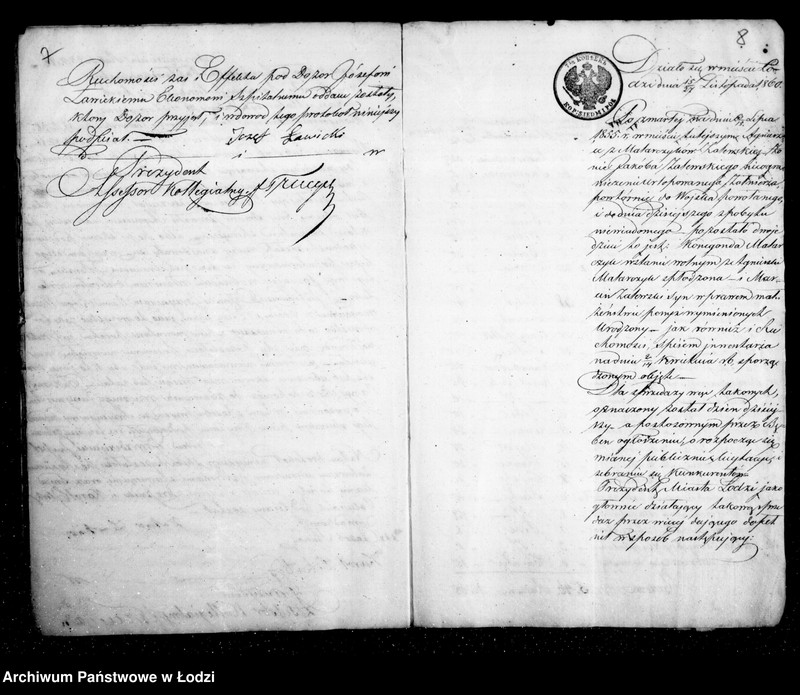 7
Ruchomości zaś i Effekta pod Dozor Józefowi
Ławickiemu Ekonomowi Szpitalnemu oddane zostały,
który Dozor przyjął, i w dowód tego protokół niniejszy
podpisał. — Jozef Ławicki
Prezydent
Assessor Kollegialny F Traeger
8
Działo się w mieście Ło-
dzi dnia 15/27 Listopada 1860.
Po zmarłej dnia Lipca
1855 r. w mieście tutejszym Agnieszce
z Matarczyków Zatorskiej żo-
nie Jakóba Zatorskiego
Żołnierza,
powtórnie do Wojska powołanego,
i do dnia dzisiejszego z pobytu
niewiadomego — pozostało dwoje
dzieci to jest: Konegonda Matar-
czyk w stanie wolnym z Agnieszki
Matarczyk spłodzona — i Mar-
cin Zatorski syn w prawem mał-
żeństwie powyż wymienionych
Urodzony — jak również i Ru-
chomości, spisem inwentarza
na dniu 2/14 Kwietnia rb. sporzą-
dzonym objęte —
Dla sprzedaży więc takowych,
oznaczony został dzień dzisiej-
szy — a po stosownym przez
ben ogłoszeniu, o rozpocząć się
mianej publicznej licytacji, i
zebraniu się Konkurentów
Prezydent Miasta Łodzi jako
głównie działający takową sprze-
daż przez więcej dającego dopeł-
nił w sposób następujący:
Archiwum Państwowe w Łodzi